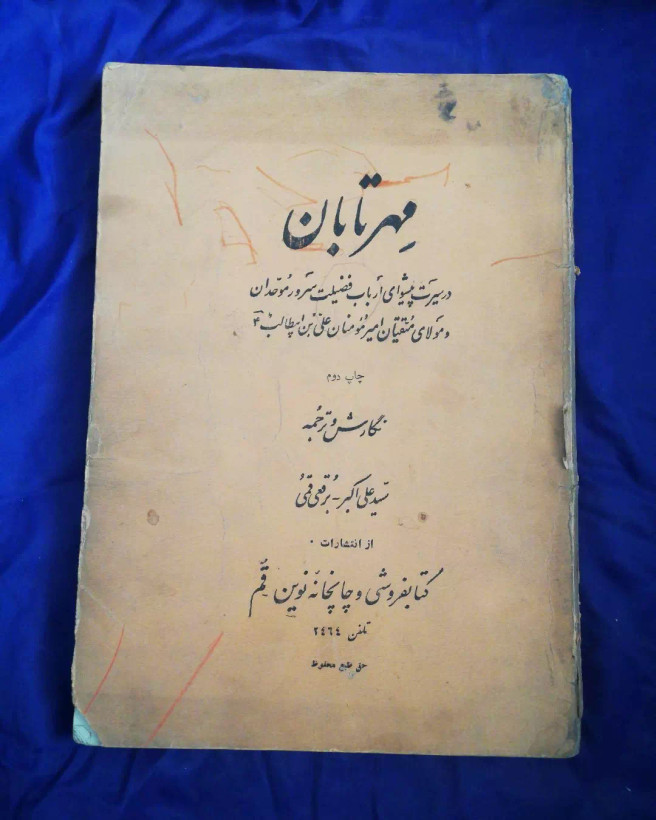 مهر تابان
در سیرت پیشوای ارباب فضیلت سرور موحّدان
و مولای متّقیان امیر مؤمنان علی بن ابیطالب ع
چاپ دوم
نگارش و ترجمه
سیّد علی اکبر - برقعی قمی
از انتشارات .
کتابفروشی و چاپخانه نوین - قم
تلفن ۲۴۶۴
حق طبع محفوظ